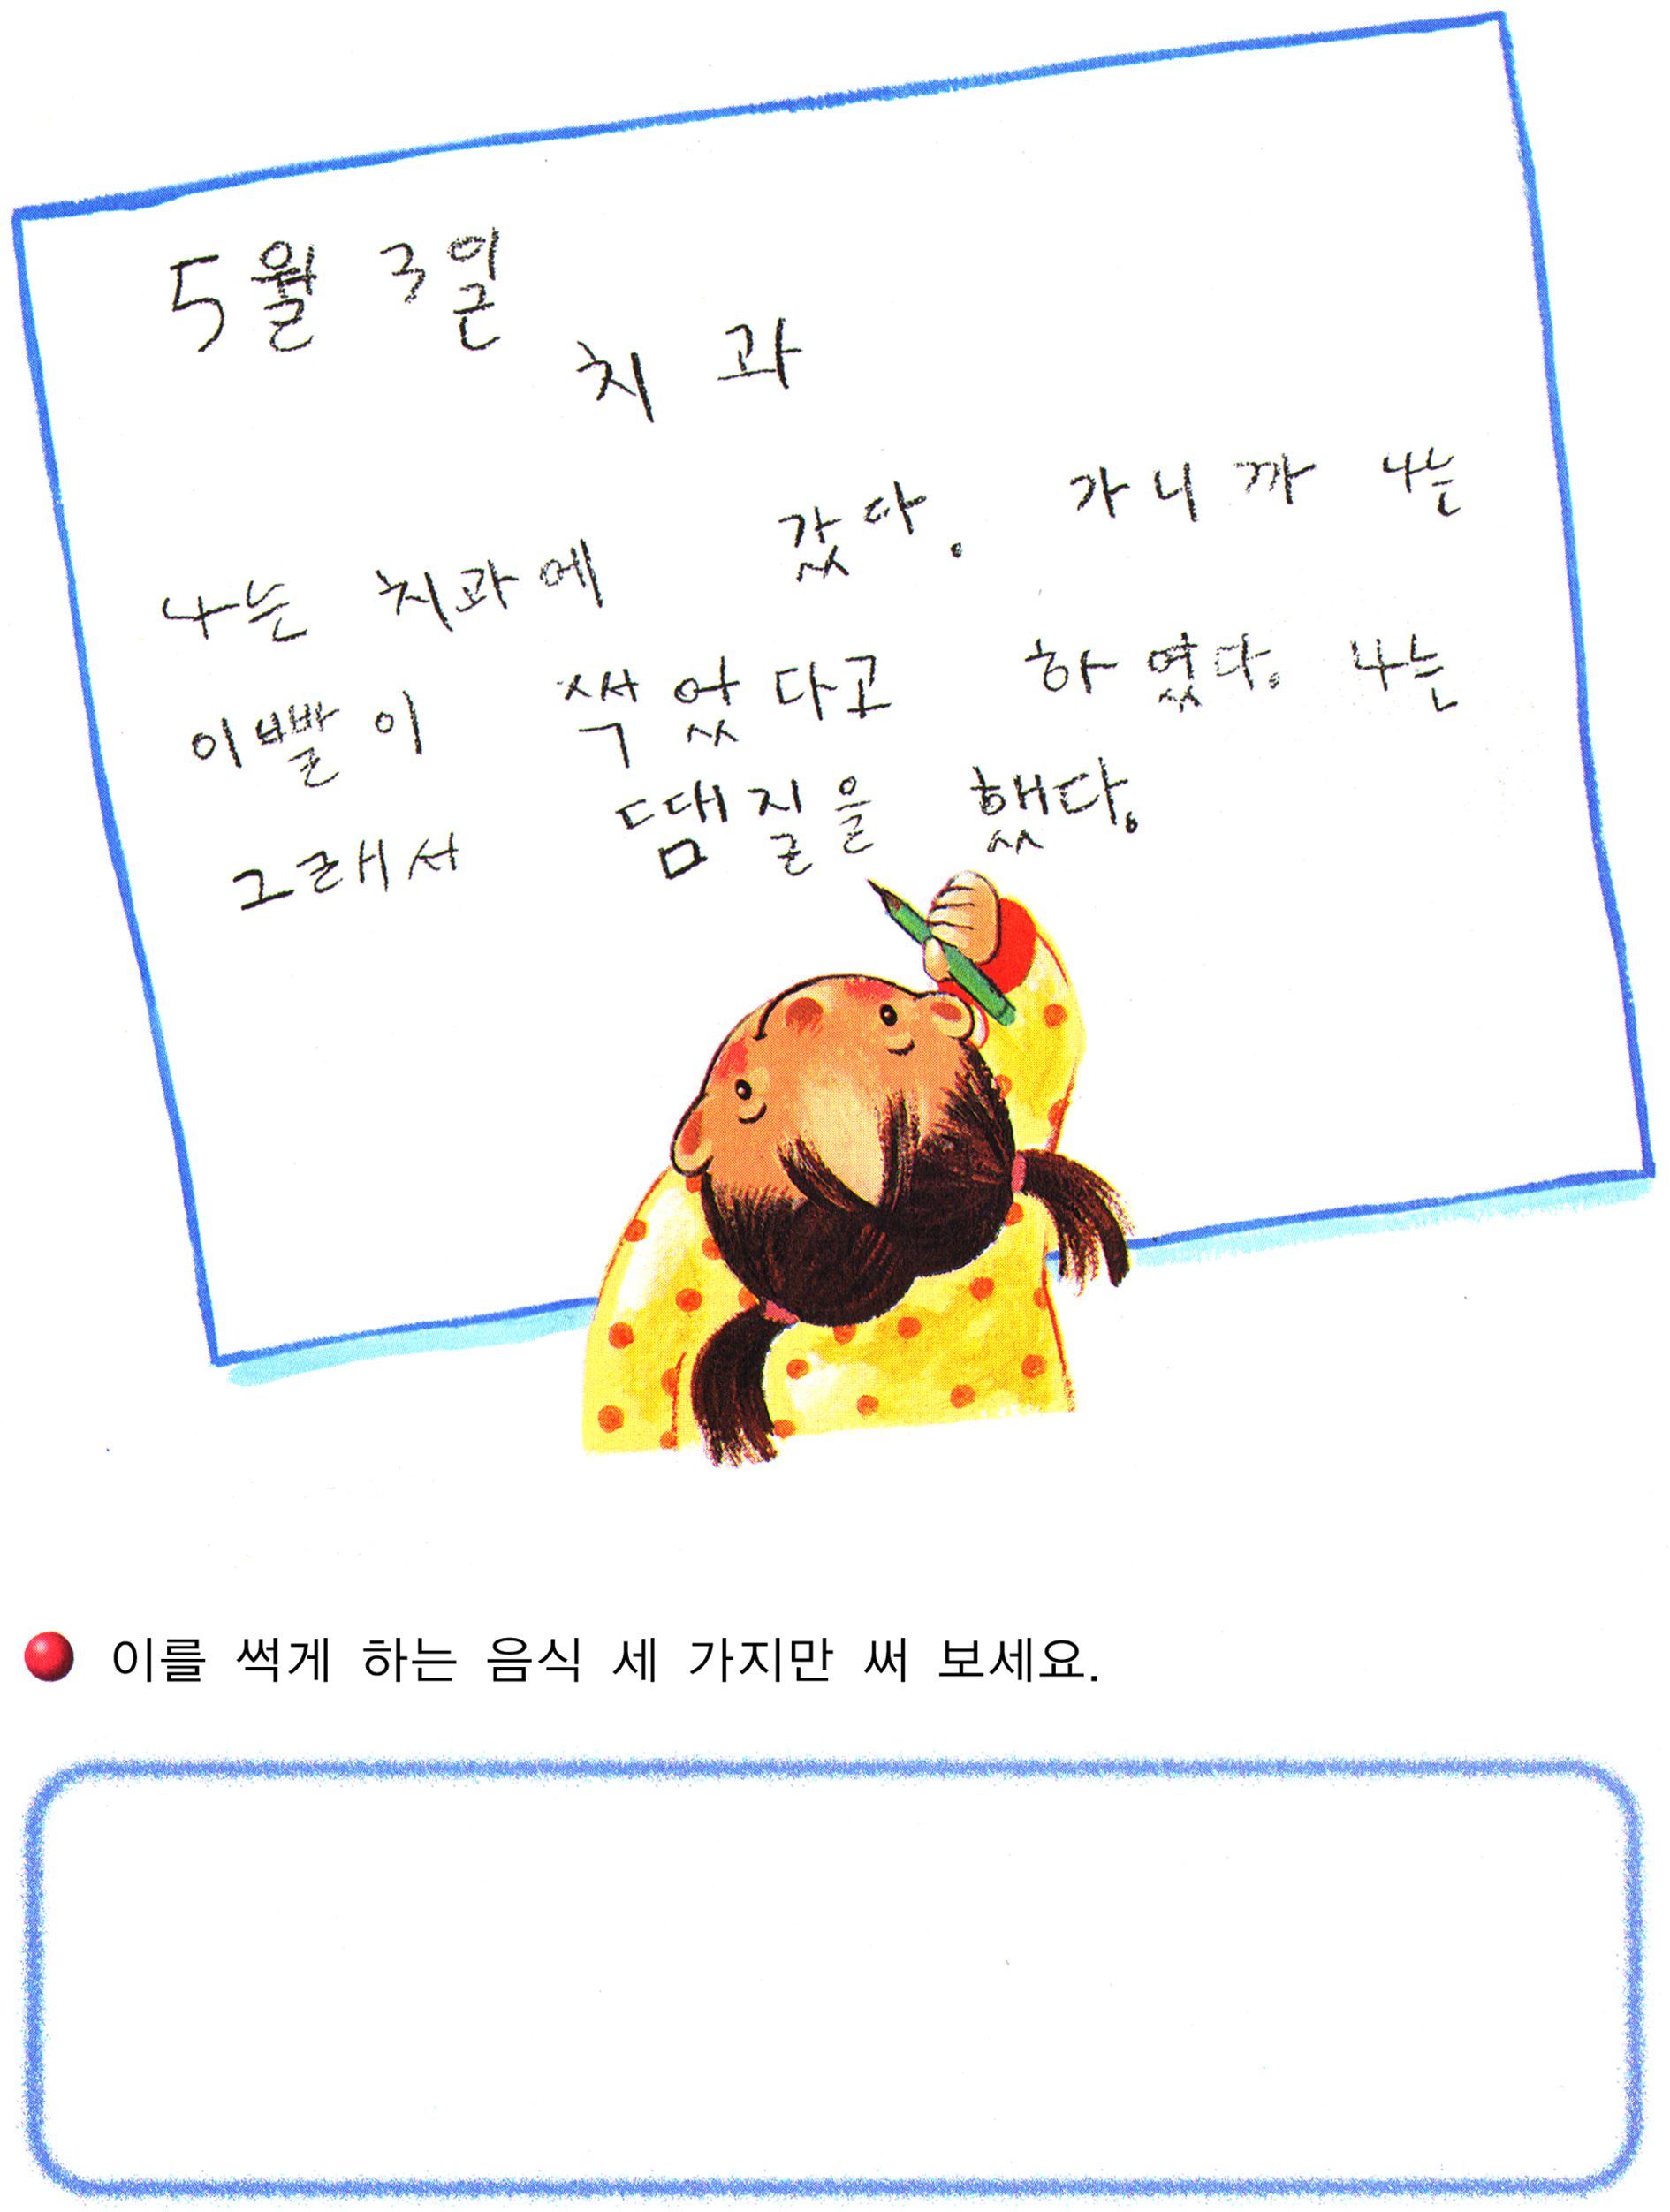 5월 3일
치 과
나는 치과에 갔다. 가니까 나는
이빨이 썩았다고 하였다. 나는
그래서 땜질을 했다.
이를 썩게 하는 음식 세 가지만 써 보세요.